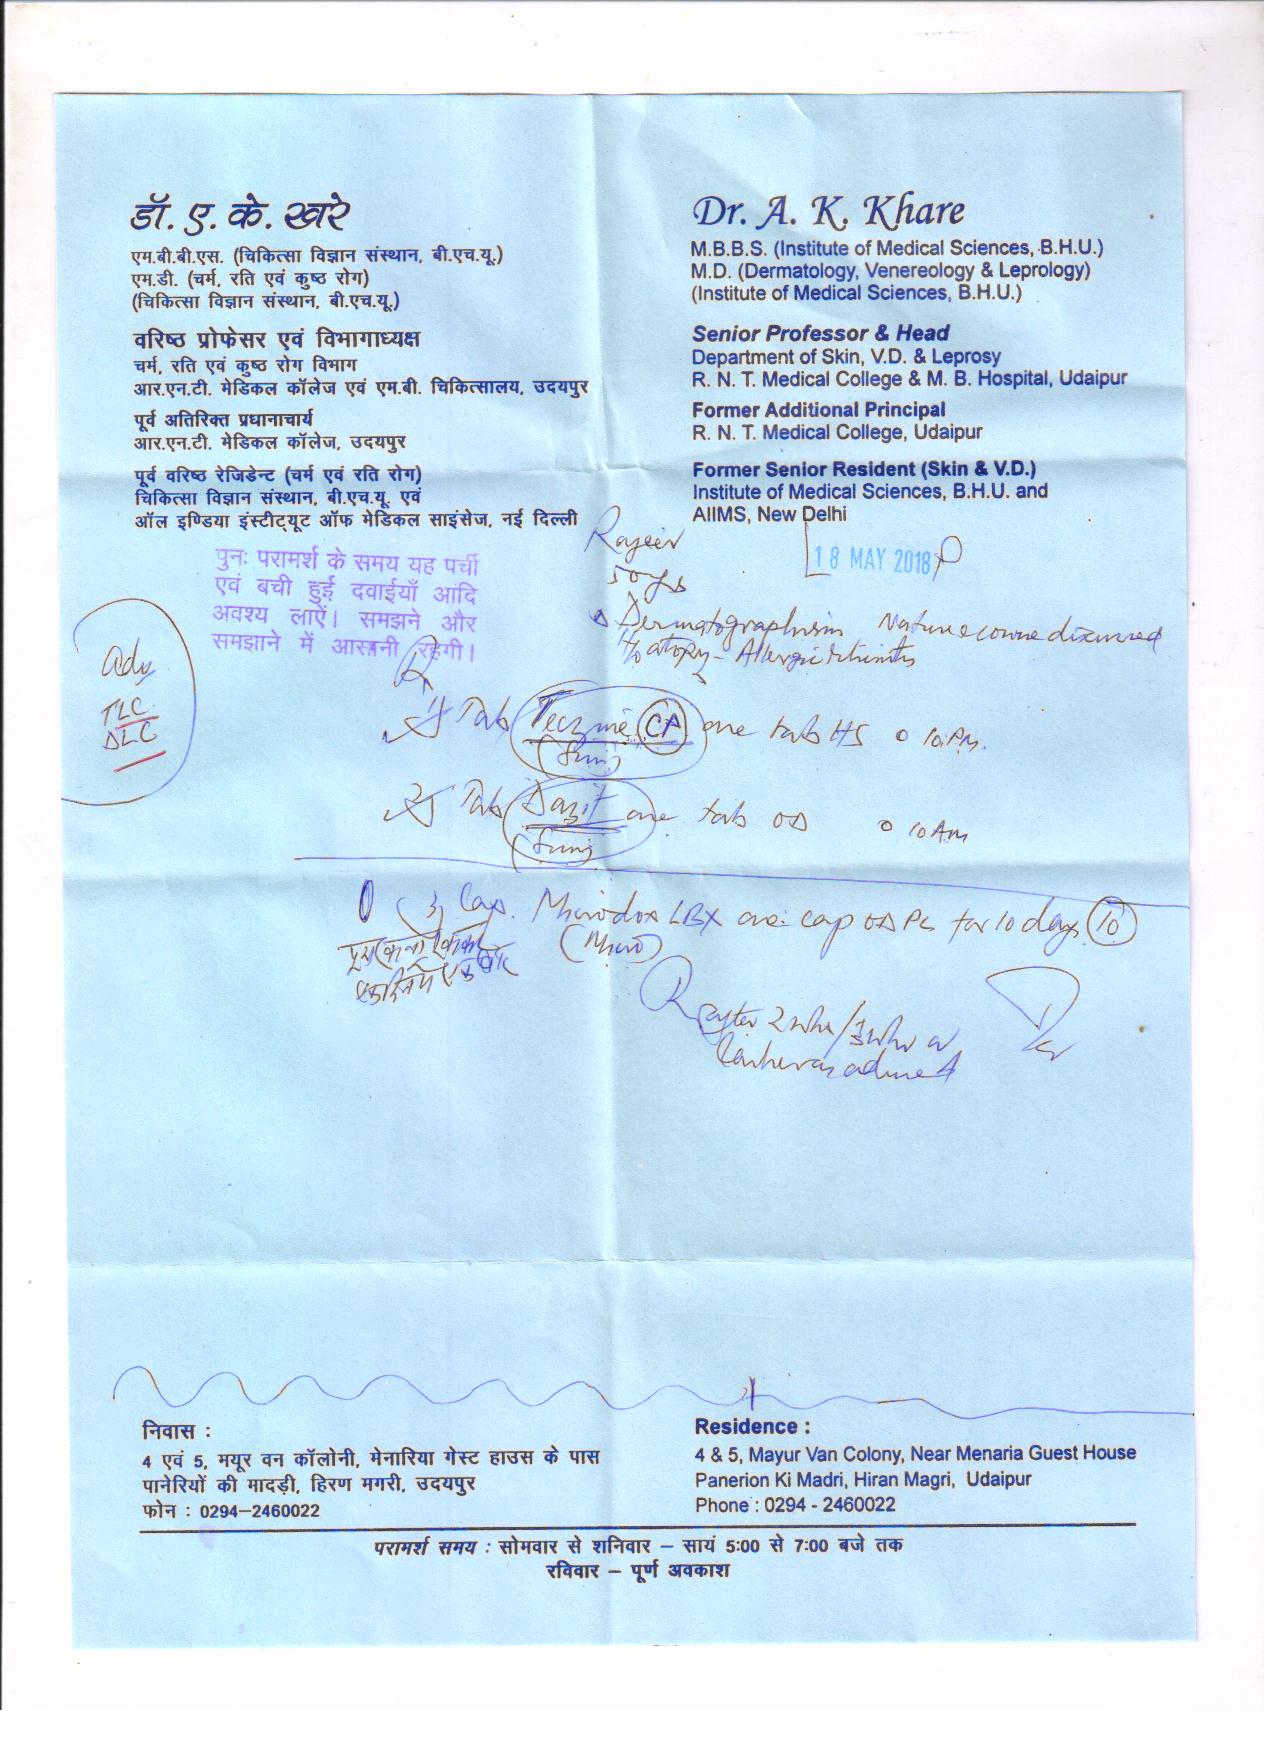 डॉ. ए. के. खरे
एम.बी.बी.एस. (चिकित्सा विज्ञान संस्थान, बी.एच.यू.)
एम.डी. (चर्म, रति एवं कुष्ठ रोग)
(चिकित्सा विज्ञान संस्थान, बी.एच.यू.)
वरिष्ठ प्रोफेसर एवं विभागाध्यक्ष
चर्म, रति एवं कुष्ठ रोग विभाग
आर.एन.टी. मेडिकल कॉलेज एवं एम.बी. चिकित्सालय, उदयपुर
पूर्व अतिरिक्त प्रधानाचार्य
आर.एन.टी. मेडिकल कॉलेज, उदयपुर
पूर्व वरिष्ठ रेजिडेन्ट (चर्म एवं रति रोग)
चिकित्सा विज्ञान संस्थान, बी.एच.यू. एवं
ऑल इण्डिया इंस्टीट्यूट ऑफ मेडिकल साइंसेज, नई दिल्ली
Dr. A. K. Khare
M.B.B.S. (Institute of Medical Sciences, B.H.U.)
M.D. (Dermatology, Venereology & Leprology)
(Institute of Medical Sciences, B.H.U.)
Senior Professor & Head
Department of Skin, V.D. & Leprosy
R. N. T. Medical College & M. B. Hospital, Udaipur
Former Additional Principal
R. N. T. Medical College, Udaipur
Former Senior Resident (Skin & V.D.)
Institute of Medical Sciences, B.H.U. and
AIIMS, New Delhi
पुनः परामर्श के समय यह पर्ची
एवं बची हुई दवाईयाँ आदि
अवश्य लाऐं। समझने और
समझाने में आसानी रहेगी।
18 MAY 2018
Rajeev
50 yrs
Dermatographism Nature course discussed
atopy - Allergic rhinitis
Adv
TLC
DLC
1) Tab one tab HS 10 PM.
(Sun)
2) Tab Dazit one tab OD 10 AM
(Sun)
3) Cap. Microdox LBX one cap OD PC for 10 days 10
(Micro)
R after 2 wks/3 wks or
earlier as advised
निवास :
4 एवं 5, मयूर वन कॉलोनी, मेनारिया गेस्ट हाउस के पास
पानेरियों की मादड़ी, हिरण मगरी, उदयपुर
फोन : 0294–2460022
Residence :
4 & 5, Mayur Van Colony, Near Menaria Guest House
Panerion Ki Madri, Hiran Magri, Udaipur
Phone : 0294 - 2460022
परामर्श समय : सोमवार से शनिवार – सायं 5:00 से 7:00 बजे तक
रविवार – पूर्ण अवकाश